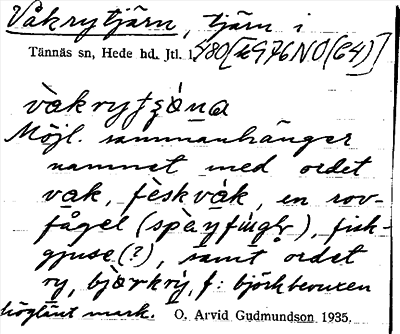 Våkrytjärn, tjärn i
Tännäs sn, Hede hd. Jtl. l. 480 [k G976 NO (C4)]
vàkrytʒä̀ṇa
Möjl. sammanhänger
namnet med ordet
vak, fèskvàk, en rov-
fågel (spàyfiŋglr), fisk-
gjuse (?), samt ordet
ry, bjǽrkrỳ, f: björkbevuxen
höglänt mark. O. Arvid Gudmundson 1935.